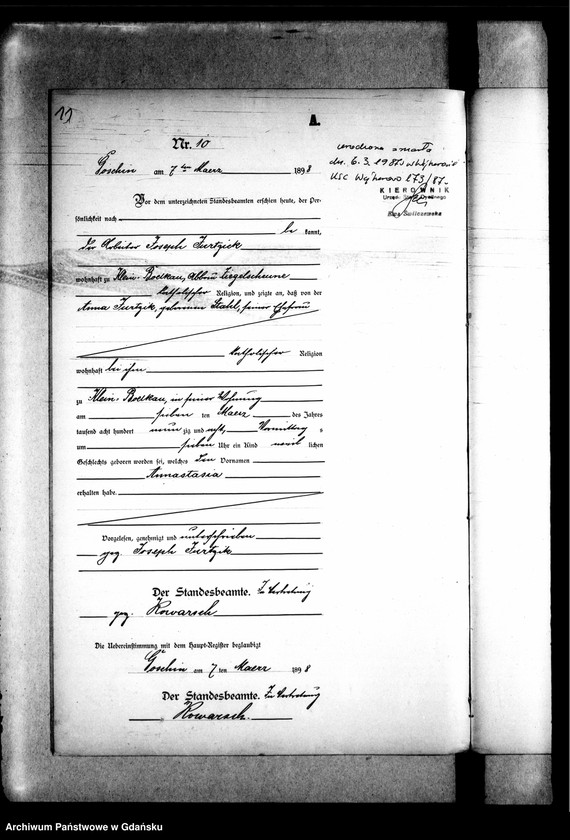 11
A.
Nr. 10
Goschin am 7ten Maerz 1898
Vor dem unterzeichneten Standesbeamten erschien heute, der Per-
sönlichkeit nach
be kannt,
der Arbeiter Joseph Turtzick
wohnhaft zu Klein-Boelkau, Abbau Ziegelscheune
katholischer Religion, und zeigte an, daß von der
Anna Turtzik, geborenen Stahl, seiner Ehefrau
katholischer Religion
wohnhaft bei ihm
zu Klein-Boelkau, in seiner Wohnung
am sieben ten Maerz des Jahres
tausend acht hundert neun zig und acht, Vormittag s
um sieben Uhr ein Kind weib lichen
Geschlechts geboren worden sei, welches den Vornamen
Annastasia
erhalten habe.
Vorgelesen, genehmigt und unterschrieben
gez. Joseph Turtzik
Der Standesbeamte. In Vertretung
gez. Kowarsch
Die Uebereinstimmung mit dem Haupt-Register beglaubigt
Goschin am 7 ten Maerz 1898
Der Standesbeamte. In Vertretung
Kowarsch.
urodzona zmarła
dn. 6.3.1987 w Wejherowie
USC Wejherowo 273/87.
KIEROWNIK
Urzędu Stanu Cywilnego
Archiwum Państwowe w Gdańsku